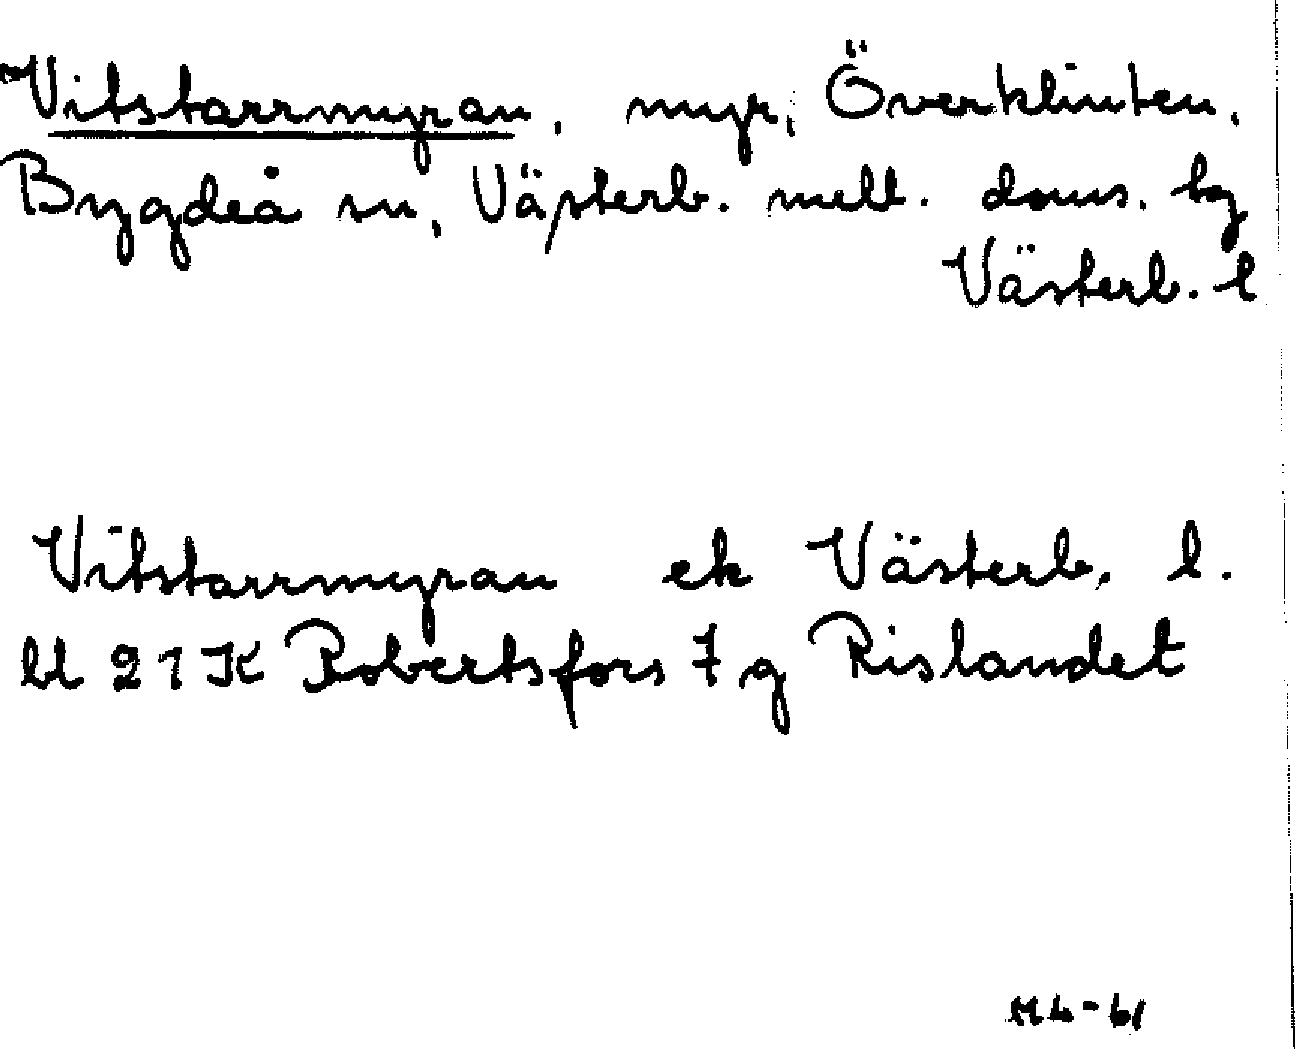 Vitstarrmyran, myr, Överklinten,
Bygdeå sn, Västerb. mell. doms. hg
Västerb. l
Vitstarrmyran ek Västerb. l.
bl 21K Robertsfors 7 g Rislandet